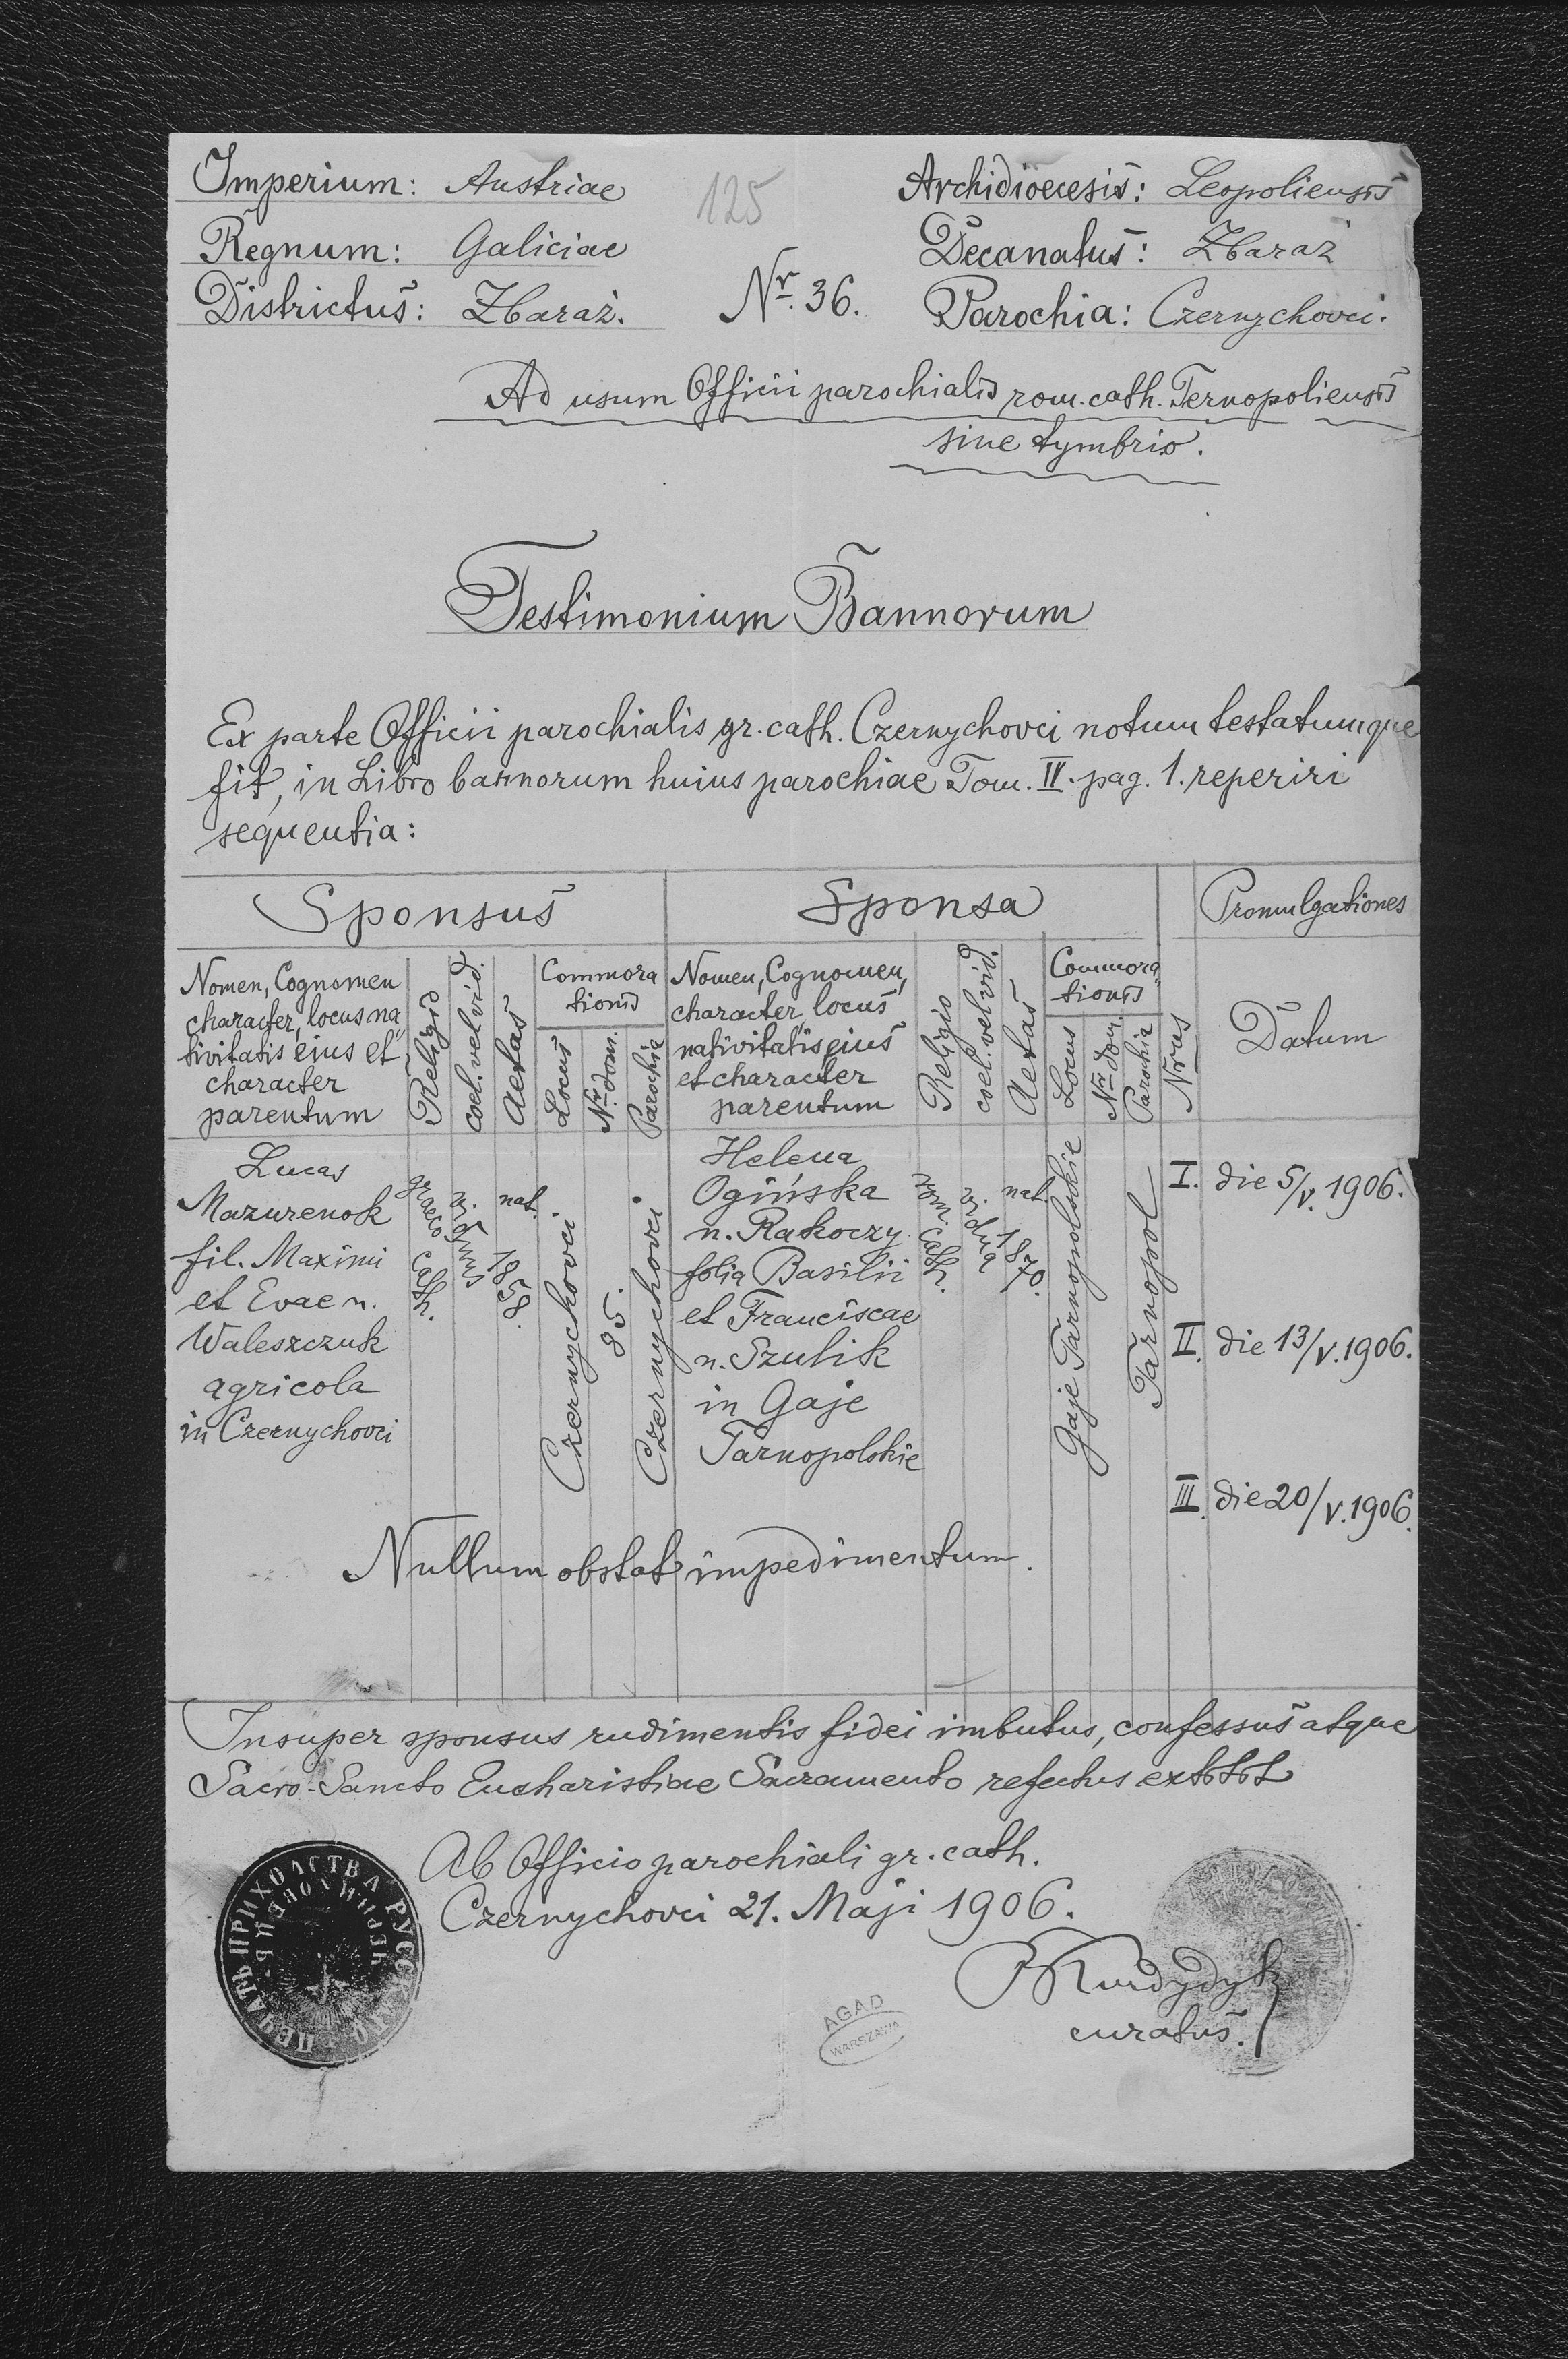 Imperium: Austriae
125
Archidioecesis: Leopoliensis
Regnum: Galiciae
Decanatus: Zbaraż
Districtus: Zbaraż.
Nr. 36.
Parochia: Czernychovci.
Ad usum Officii parochialis rom. cath. Ternopoliensis
sine tymbris.
Testimonium Bannorum
Ex parte Officii parochialis gr. cath. Czernychovci notum testatumque
fit, in Libro bannorum huius parochiae Tom. II. pag. 1. reperiri
sequentia:
Sponsus
Sponsa
Promulgationes
Nomen, Cognomen
character, locus na
tivitatis ejus et
character
parentum
Religio
coel. vel vid.
Aetas
Commora
tionis
Locus
Nr. dom.
Parochia
Nomen, Cognomen,
character, locus
nativitatis ejus
et character
parentum
Religio
coel. vel vid.
Aetas
Commora
tionis
Locus
Nr. dom.
Parochia
Nrus
Datum
Lucas
Mazurenok
fil. Maximi
et Evae n.
Waleszczuk
agricola
in Czernychovci
graeco cath.
viduus
nat. 1858.
Czernychovci
85.
Czernychovci
Helena
Ogińska
n. Rakoczy
folia Basilii
et Franciscae
n. Szulik
in Gaje
Tarnopolskie
rom. cath.
vidua
nat. 1870.
Gaje Tarnopolskie
Tarnopol
I. die 5/V. 1906.
II. die 13/V. 1906.
III. die 20/V. 1906.
Nullum obstat impedimentum.
Insuper sponsus rudimentis fidei imbutus, confessus atque
Sacro-Sancto Eucharistiae Sacramento refectus extitit
Ab Officio parochiali gr. cath.
Czernychovci 21. Maji 1906.
Kurdydyk
curatus.
ПЕЧАТЬ ПРИХОДСТВА РУССКОГО
AGAD
WARSZAWA